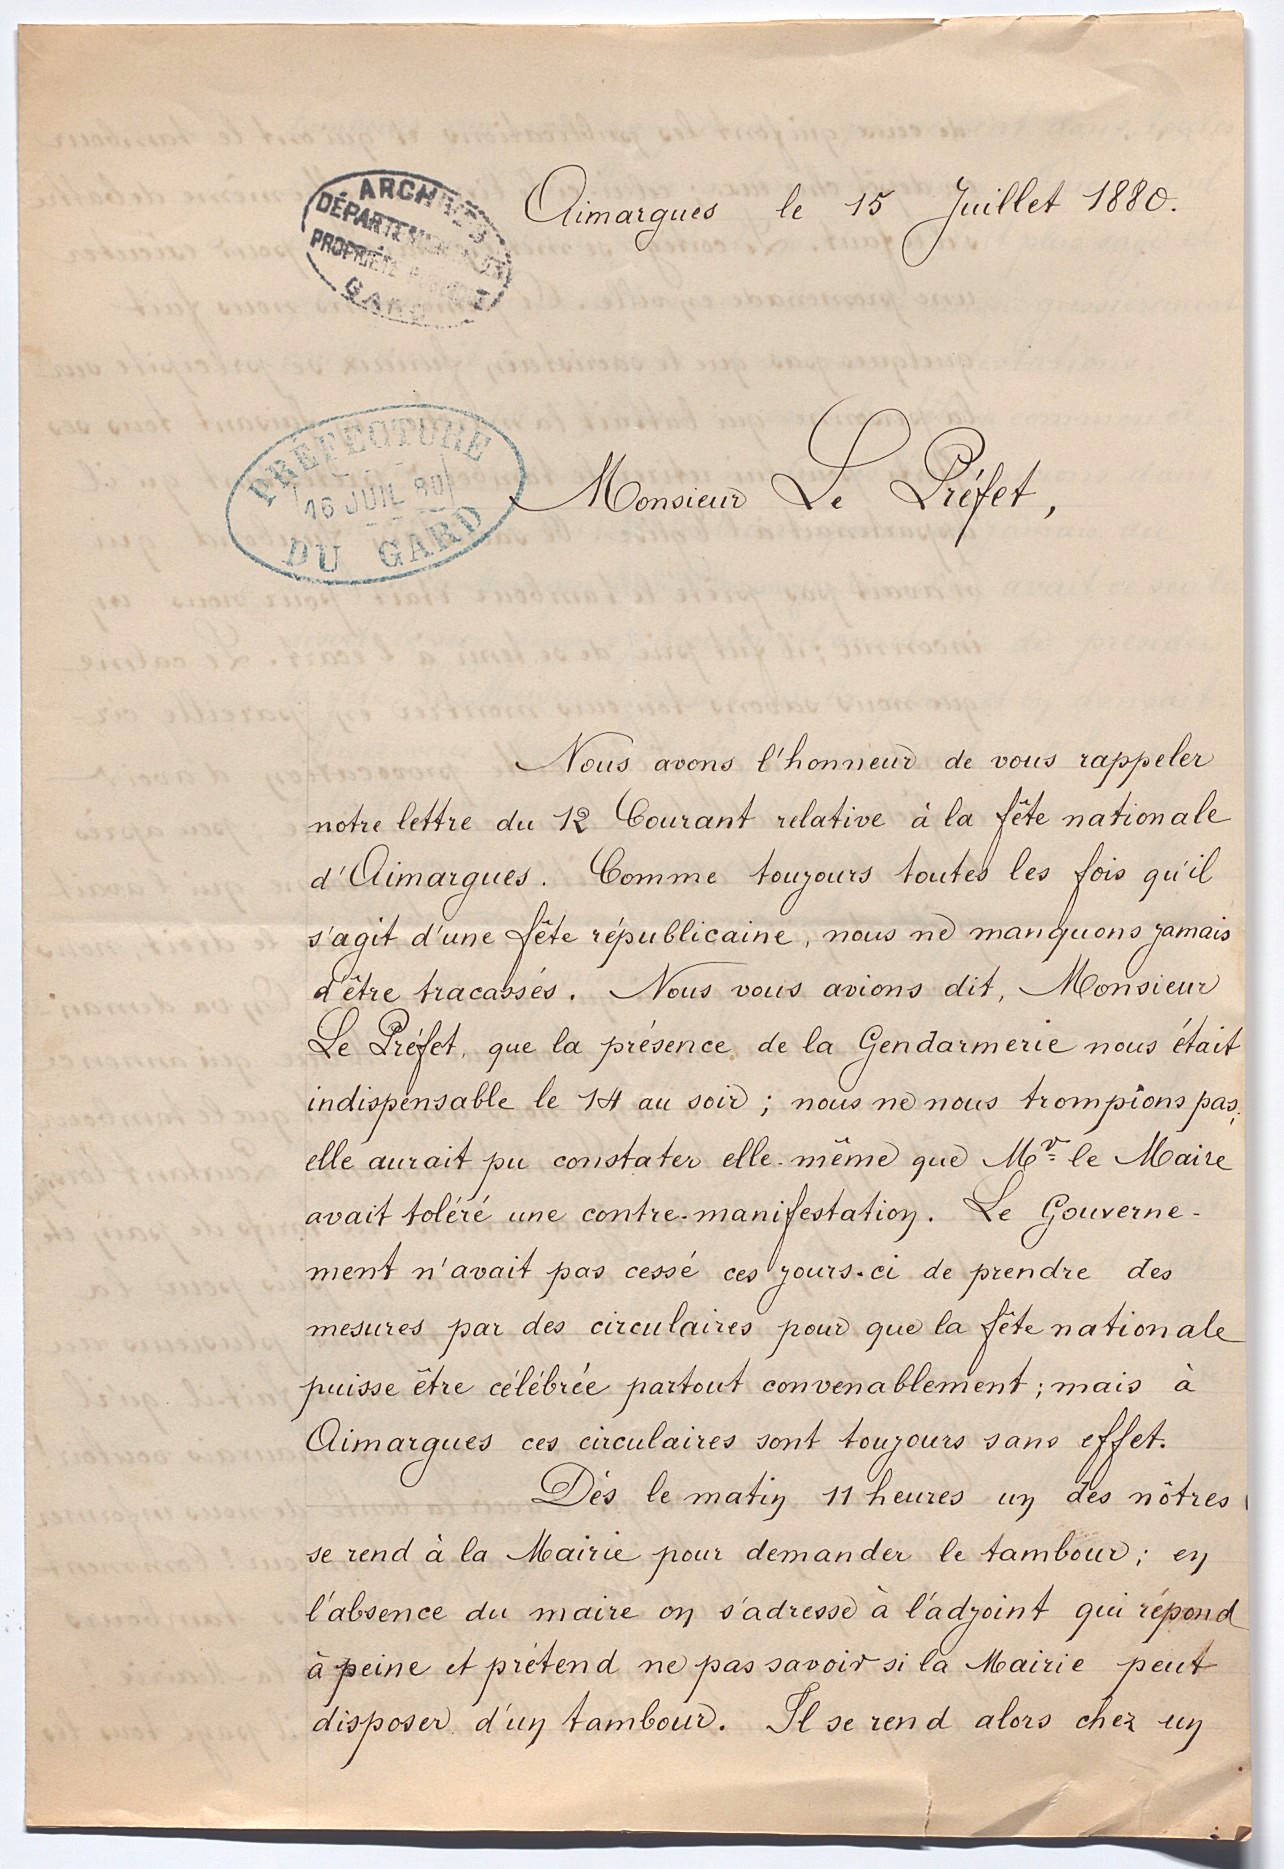 ARCHIVES
DÉPARTEMENTALES
PROPRIÉTÉ
GARD
Aimargues le 15 Juillet 1880.
PRÉFECTURE
16 JUIL 80
DU GARD
Monsieur Le Préfet,
Nous avons l'honneur de vous rappeler
notre lettre du 12 Courant relative à la fête nationale
d'Aimargues. Comme toujours toutes les fois qu'il
s'agit d'une fête républicaine, nous ne manquons jamais
d'être tracassés. Nous vous avions dit, Monsieur
Le Préfet, que la présence de la Gendarmerie nous était
indispensable le 14 au soir ; nous ne nous trompions pas;
elle aurait pu constater elle-même que Mr le Maire
avait toléré une contre-manifestation. Le Gouverne-
ment n'avait pas cessé ces jours-ci de prendre des
mesures par des circulaires pour que la fête nationale
puisse être célébrée partout convenablement ; mais à
Aimargues ces circulaires sont toujours sans effet.
Dés le matin 11 heures un des nôtres
se rend à la Mairie pour demander le tambour ; en
l'absence du maire on s'adresse à l'adjoint qui répond
à peine et prétend ne pas savoir si la Mairie peut
disposer d'un tambour. Il se rend alors chez un